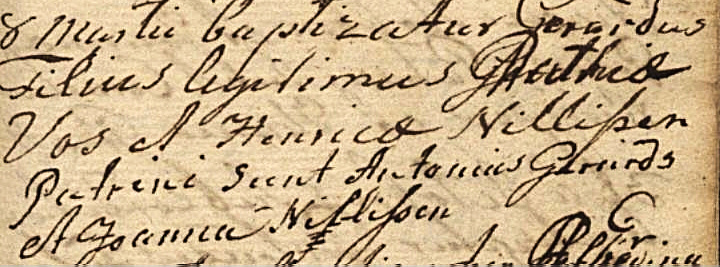 8 Martii baptizatur Gerardus
Filius legitimus Mathiæ
Vos et Henricæ Nillissen
Patrini sunt Antonius Gerirds
et Joanna Nillissen